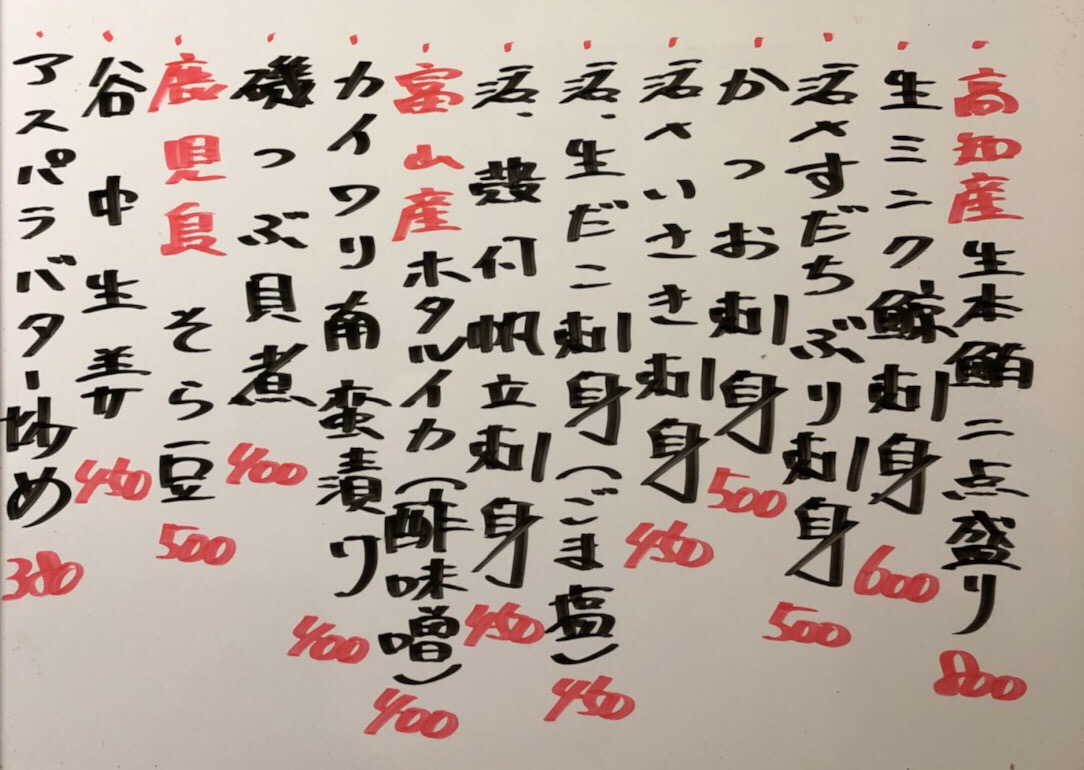 高知産生本鮪二点盛り 800
生ミニク鯨刺身 600
活〆すだちぶり刺身 500
かつお刺身 500
活〆いさき刺身 450
活、生だこ刺身(ごま塩) 450
活、殻付帆立刺身 450
富山産ホタルイカ(酢味噌) 400
カイワリ南蛮漬け 400
磯つぶ貝煮 400
鹿児島 そら豆 500
谷中生姜 450
アスパラバター炒め 380